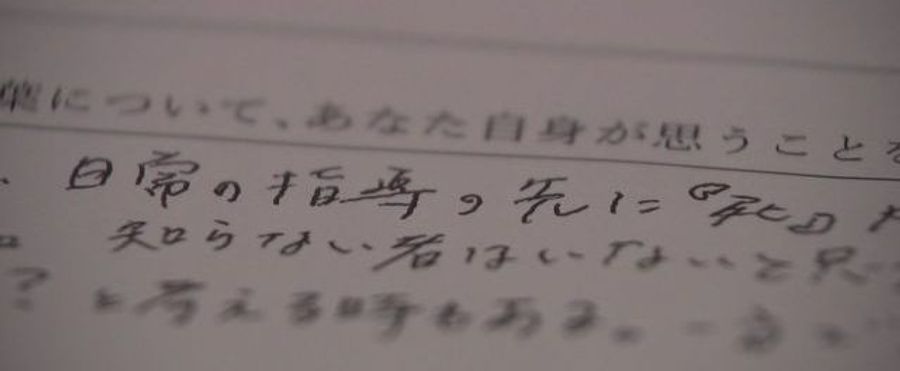 について、あなた自身が思うことを
日常の指導の先に
知らない者はいないと思
?と考える時もある。